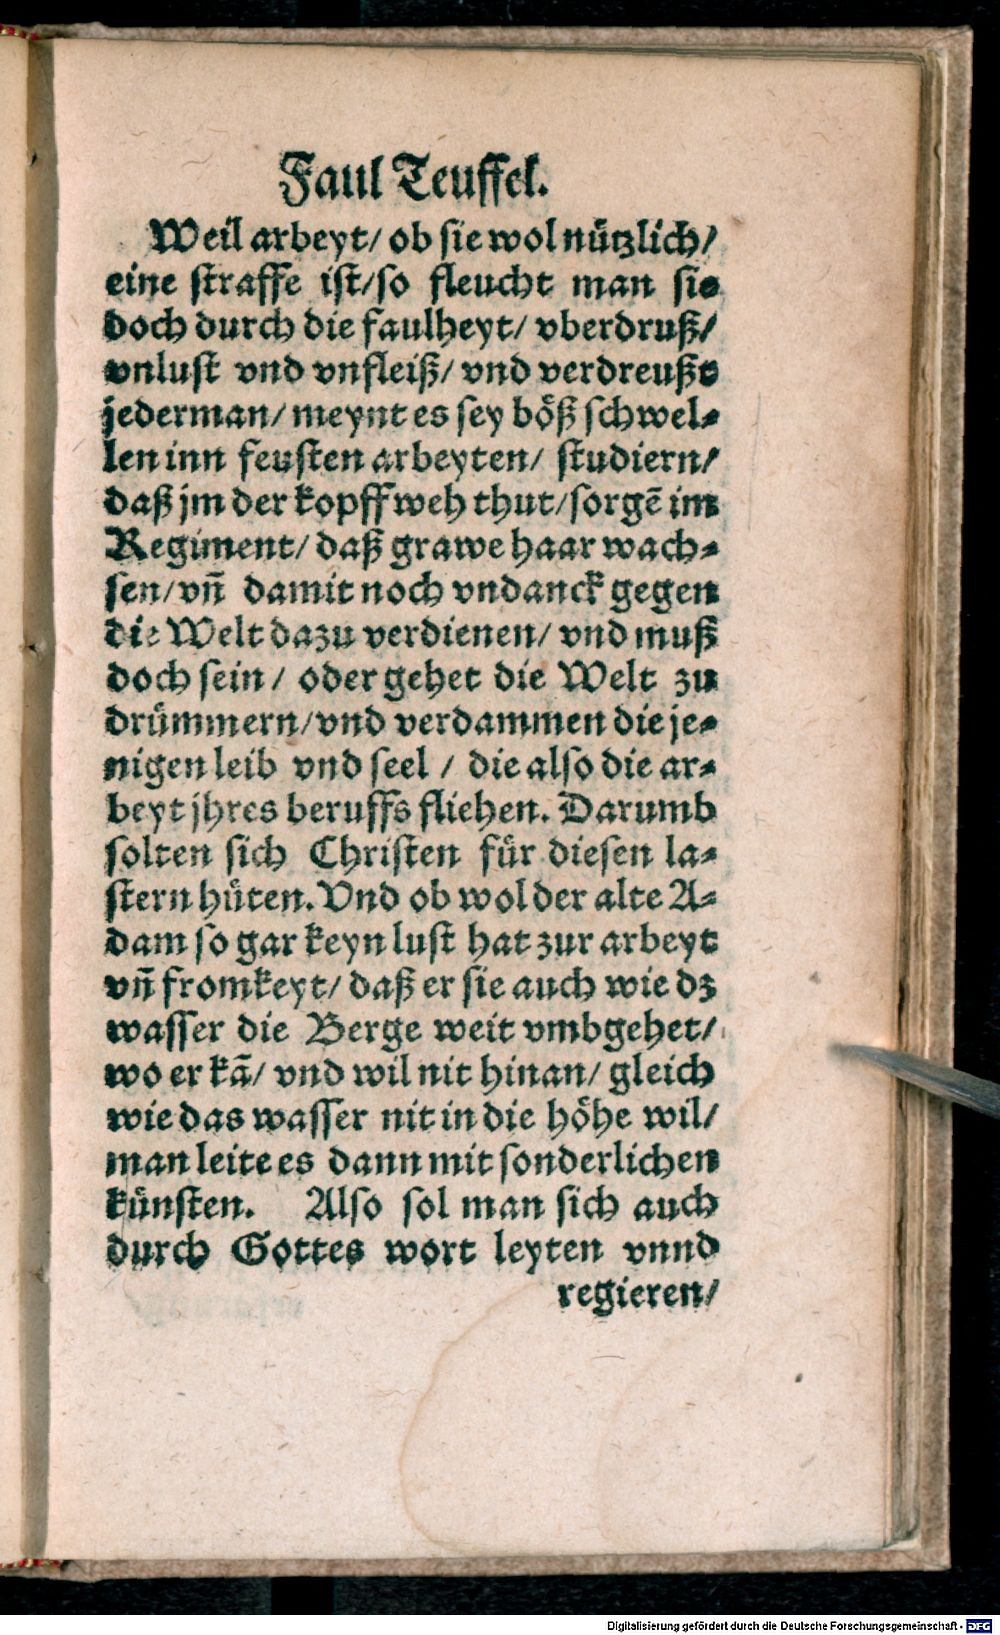 Faul Teuffel.
Weil arbeyt/ ob sie wol nützlich/
eine straffe ist/so fleucht man sie
doch durch die faulheyt/ vberdruß/
vnlust vnd vnfleiß/ vnd verdreußt
jederman/ meynt es sey böß schwel⸗
len inn feusten arbeyten/ studiern/
daß jm der kopff weh thut/sorgē im
Regiment/ daß grawe haar wach⸗
sen/vñ damit noch vndanck gegen
die Welt dazu verdienen/ vnd muß
doch sein/ oder gehet die Welt zu
drümmern/vnd verdammen die je⸗
nigen leib vnd seel / die also die ar⸗
beyt jhres beruffs fliehen. Darumb
solten sich Christen für diesen la⸗
stern hüten. Vnd ob wol der alte A⸗
dam so gar keyn lust hat zur arbeyt
vñ fromkeyt/ daß er sie auch wie dz
wasser die Berge weit vmbgehet/
wo er kā/ vnd wil nit hinan/ gleich
wie das wasser nit in die höhe wil/
man leite es dann mit sonderlichen
künsten. Also sol man sich auch
durch Gottes wort leyten vnnd
regieren/
Digitalisierung gefördert durch die Deutsche Forschungsgemeinschaft - DFG